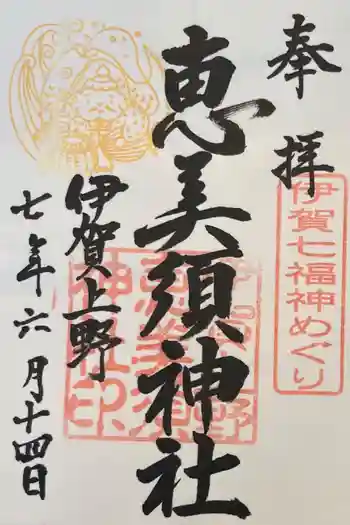 奉拝
伊賀七福神めぐり
恵美須神社
伊賀上野
七年六月十四日